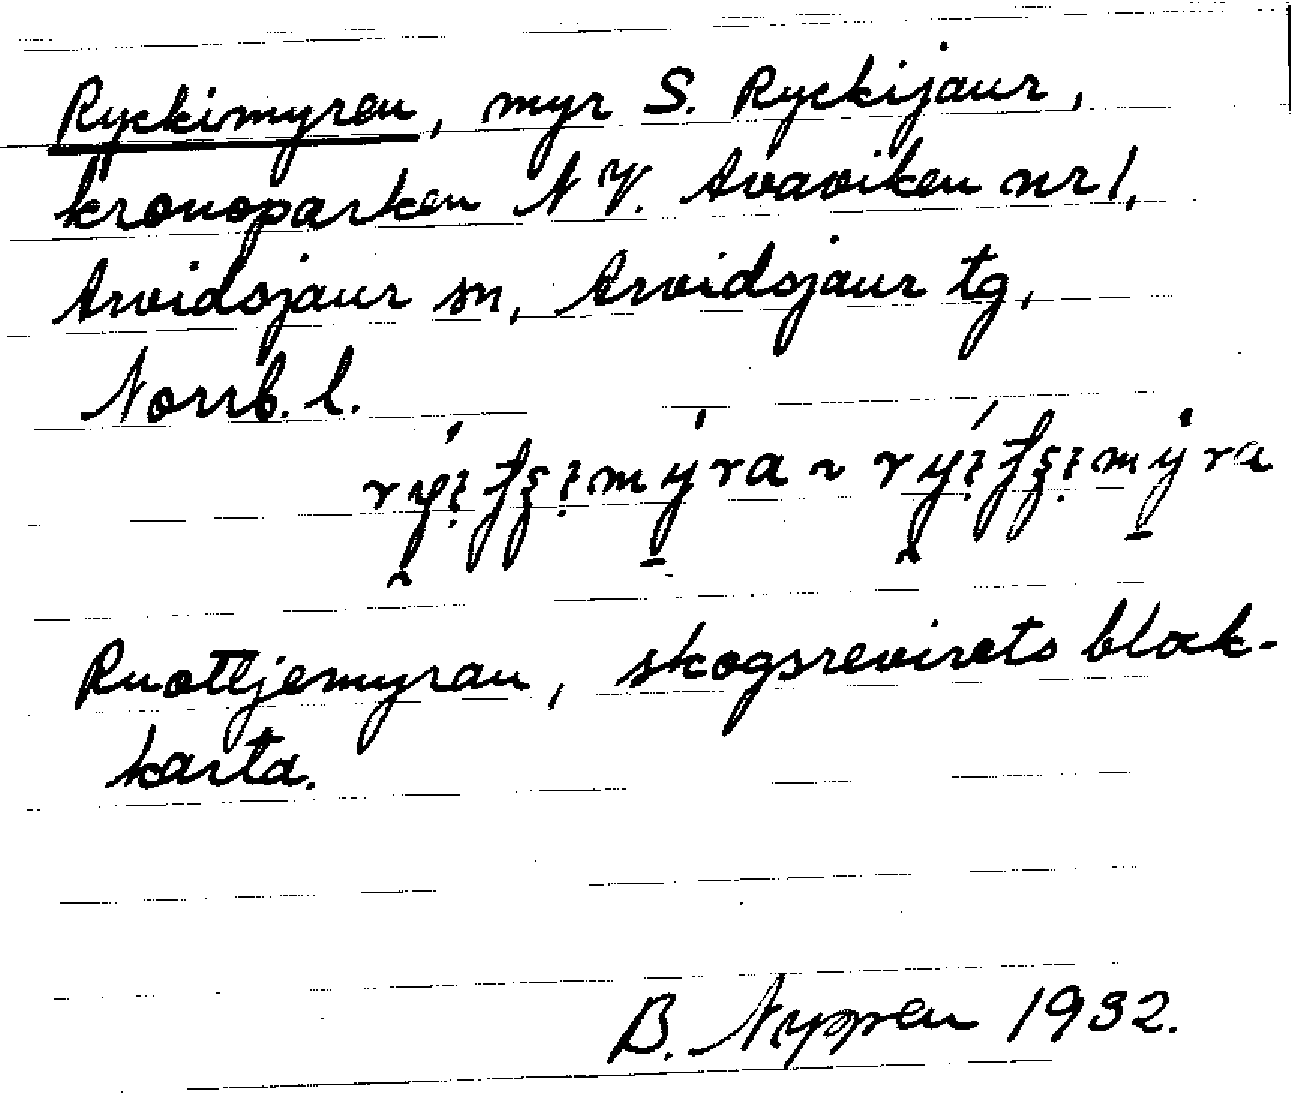 Ryckimyren, myr S. Ryckijaur,
kronoparken N V. Avaviken nr 1,
Arvidsjaur sn, Arvidsjaur tg,
Norrb. l.
Ruottjemyran, skogsrevirets blak-
karta.
B. Nyppen 1932.